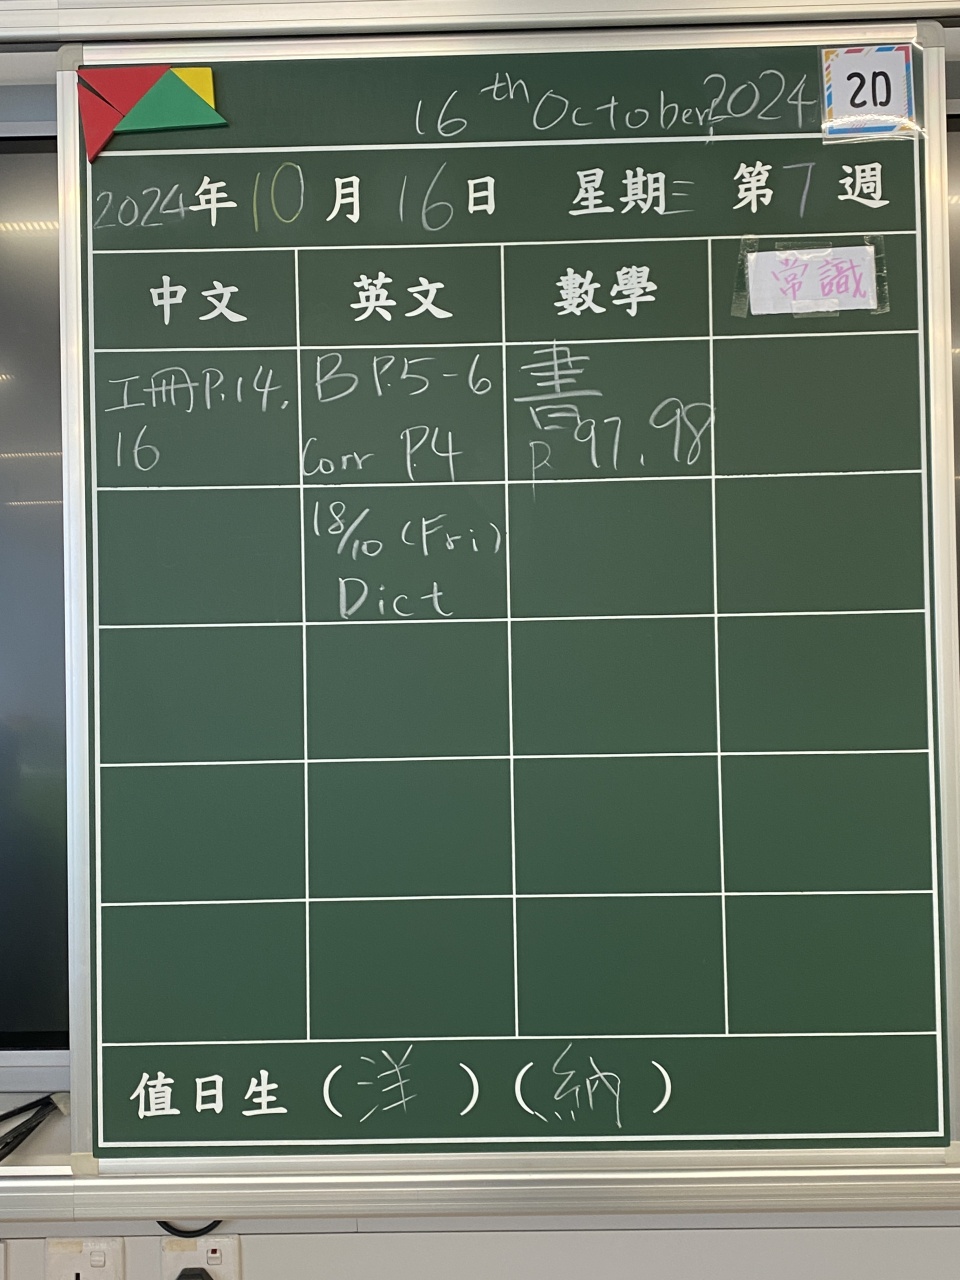 16th October, 2024
2D
2024年10月16日 星期三 第7週
中文 英文 數學 常識
工冊P.14, B P.5-6 書
16 Corr P.4 P97, 98
18/10 (Fri)
Dict
值日生(洋)(納)